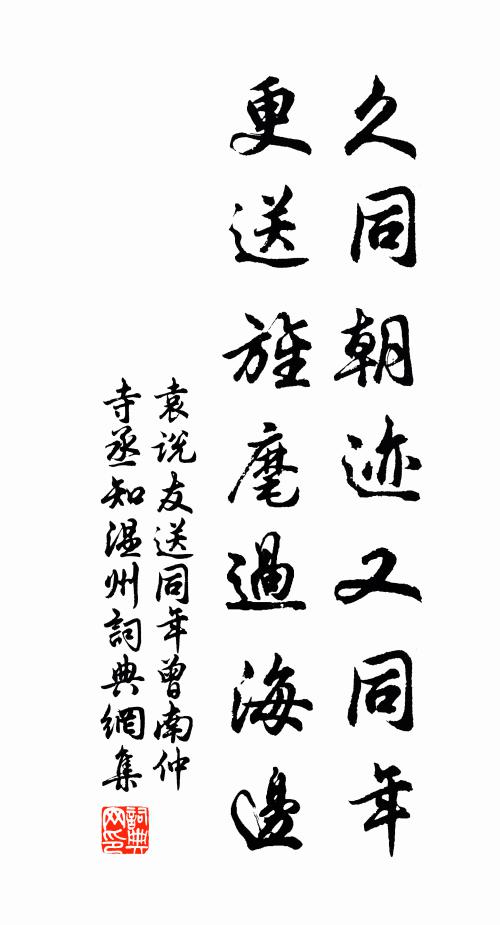 久同朝迹又同年
更送旌麾過海邊
袁説友送同年曾南仲
寺丞知温州詞典網集
詞典
网印